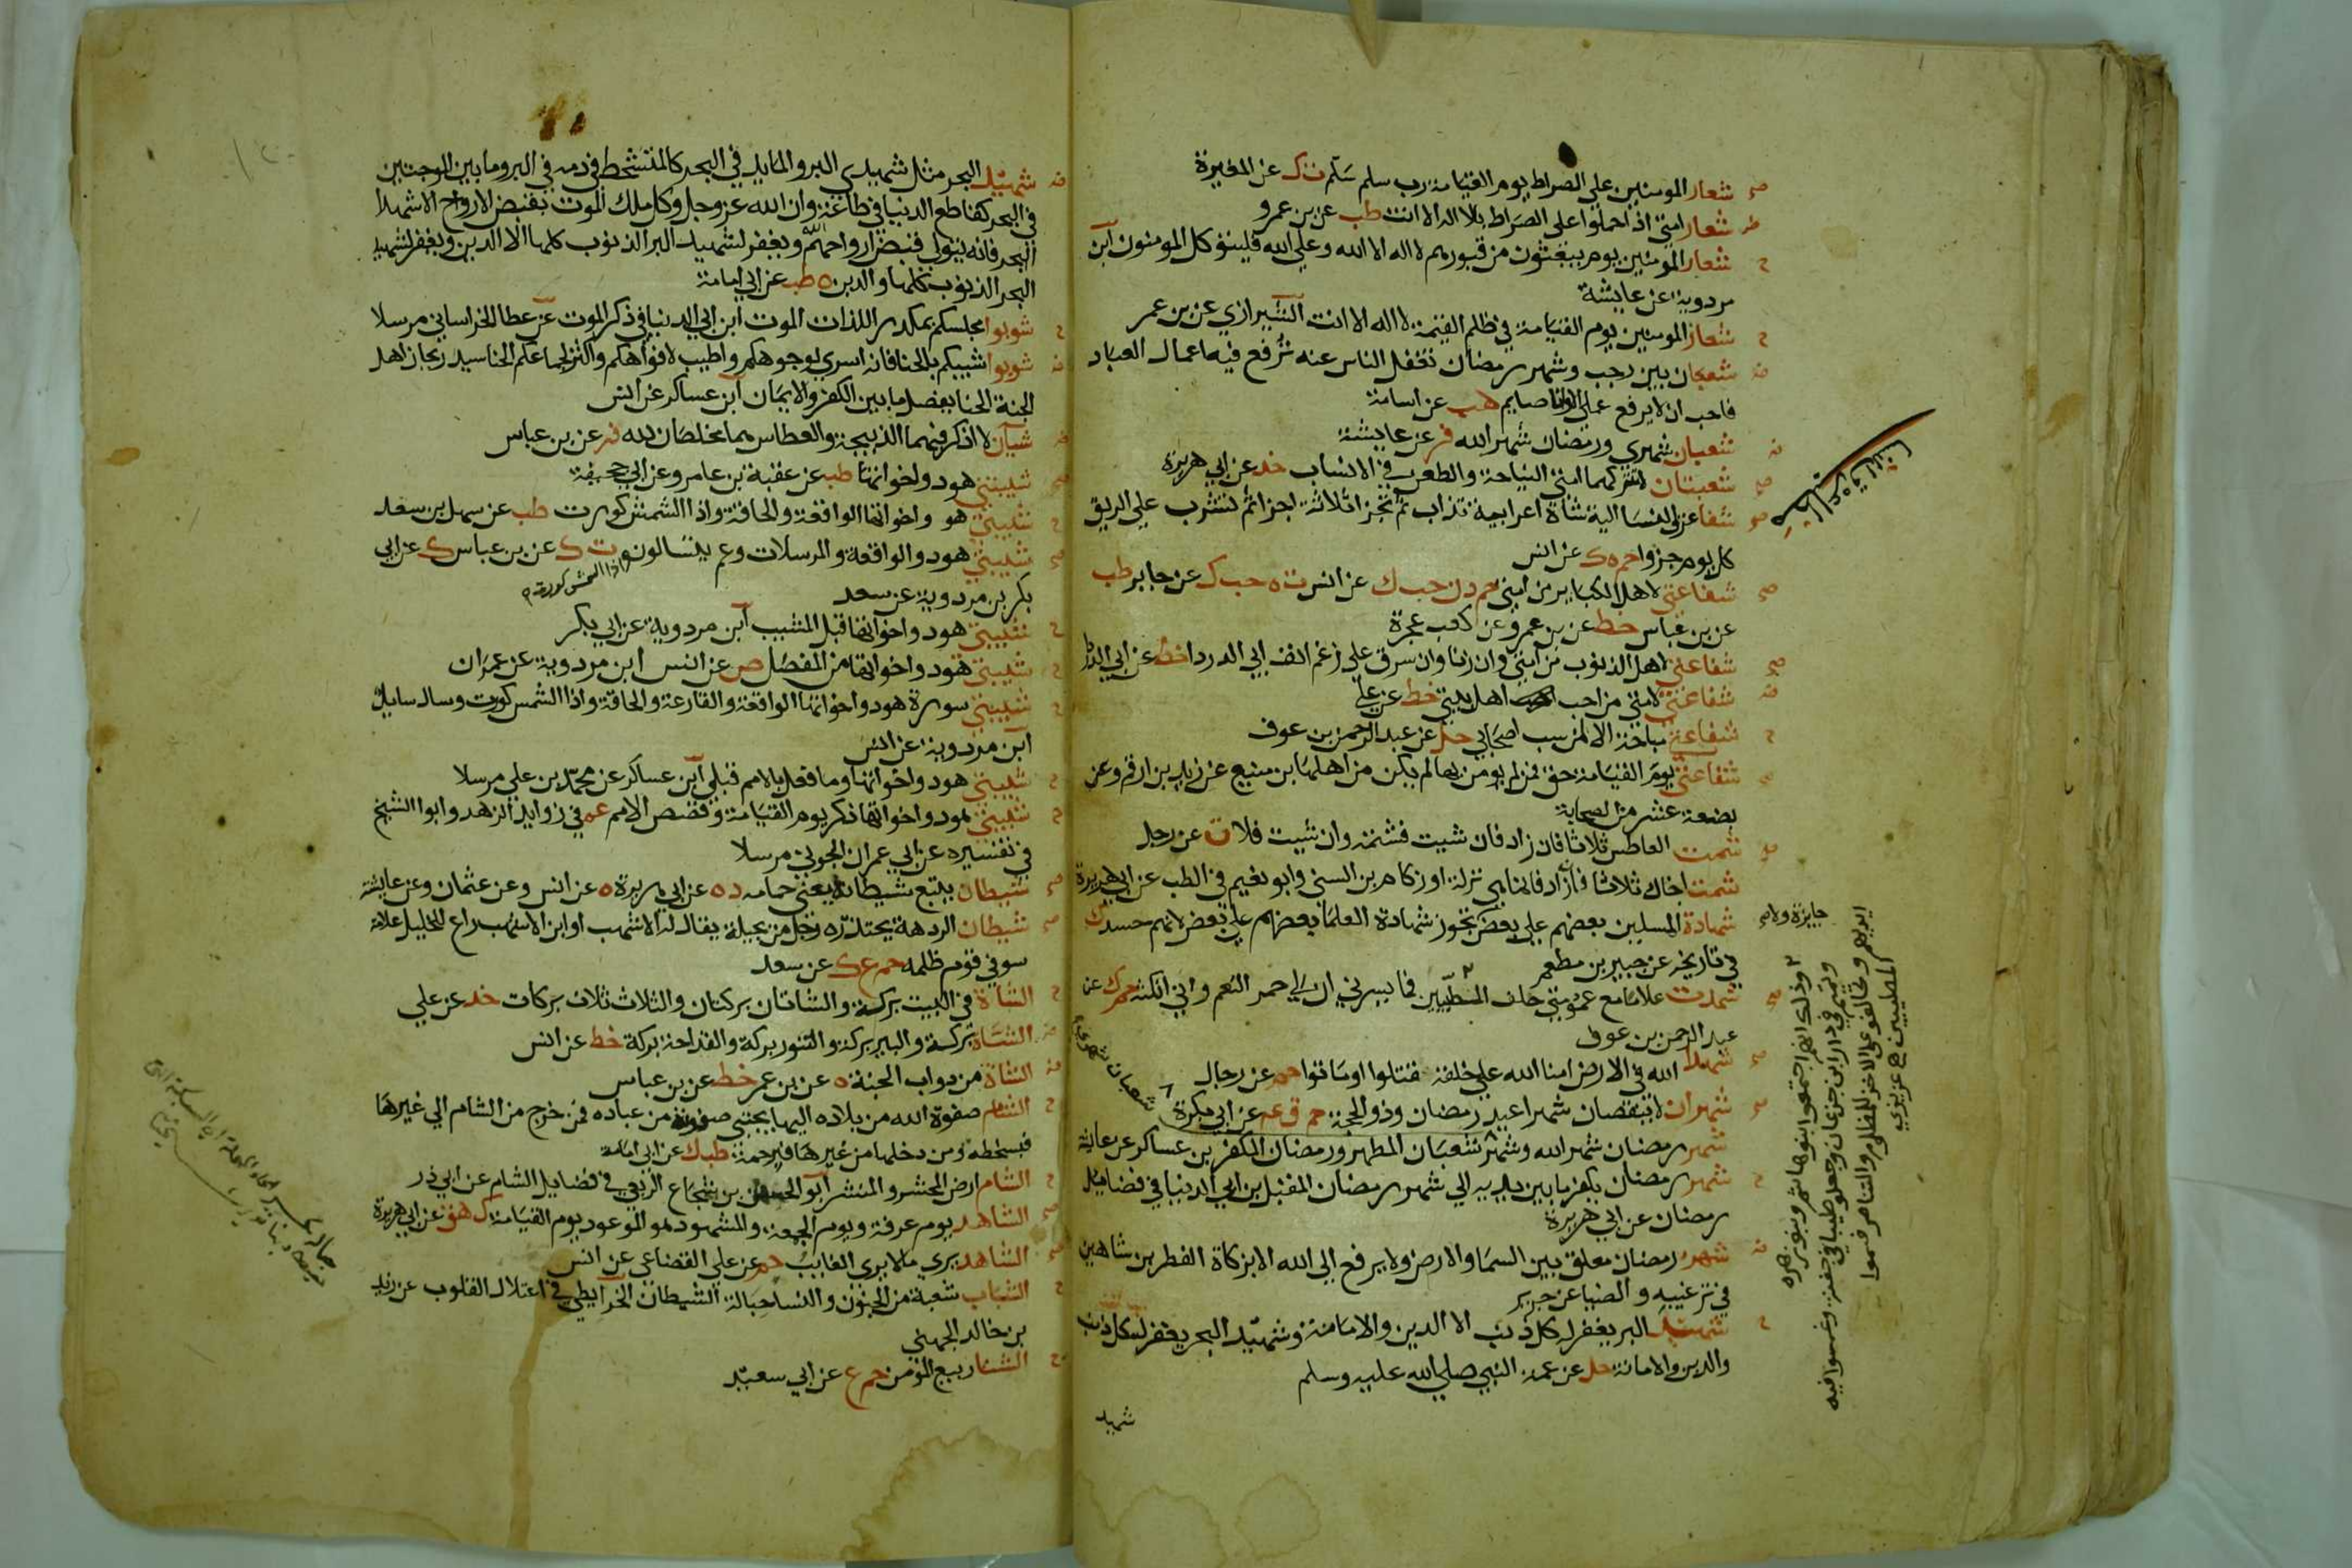 صح شعار المومنين علي الصراط يوم القيامة رب سلم سلم ت ك عن المغيرة
شعار امتي اذا حملوا على الصراط بلا اله الا انت طب عن بن عمرو
ح شعار المومنين يوم يبعثون من قبورهم لا اله الا الله وعلي الله فليتوكل المومنون ابن
مردوية عن عايشة
ح شعار المومنين يوم القيامة في ظلم القيمة لا اله الا انت الشيرازي عن بن عمر
شعبان بين رجب وشهر رمضان تغفل الناس عنه ترفع فيه اعمال العباد
فاحب ان لا يرفع عملي الا وانا صايم هب عن اسامة
شعبان شهري ورمضان شهر الله فر عن عايشة
صح شعبتان لا تتركهما امتي النياحة والطعن في الانساب خد عن ابي هريرة
صح شفا عرق النسا الية شاة اعرابية تذاب ثم تجزا ثلاثة اجزا ثم تشرب علي الريق
كل يوم جزوا حم ه ك عن انس
صح شفاعتي لاهل الكباير من امتي حم د ن حب ك عن انس ت ه حب ك عن جابر طب
عن بن عباس خط عن بن عمر وعن كعب عجرة
صح شفاعتي لاهل الذنوب من امتي وان زنا وان سرق علي رغم انف ابي الدردا خط عن ابي الدردا
شفاعتي لامتي من احب اهل بيتي خط عن علي
ح شفاعتي مباحة الا لمن سب اصحابي حل عن عبد الرحمن بن عوف
شفاعتي يوم القيامة حق فمن لم يومن بها لم يكن من اهلها بن منيع عن زيد بن ارقم وعن
بضعة عشر من الصحابة
شمت العاطس ثلاثا فان زاد فان شيت فشمته وان شيت فلا ت عن رجل
شمت اخاك ثلاثا فما زاد فانما هي نزلة او زكام بن السني وابو نعيم في الطب عن ابي هريرة
شهادة المسلمين بعضهم علي بعض تجوز شهادة العلما بعضهم علي بعض لانهم حسد ك
جايزة ولا
في تاريخه عن جبير بن مطعم
صح شهدت غلاما مع عمومتي حلف المطيبين فما يسرني ان لي حمر النعم واني انكثه حم ك عن
عبد الرحمن بن عوف
صح شهدا الله في الارض امنا الله علي خلقه قتلوا او ماتوا حم عن رجال
صح شهران لا ينقصان شهرا عيد رمضان وذو الحجة حم ق عم عن ابي بكرة
شهر رمضان شهر الله وشهر شعبان المطهر ورمضان المكفر بن عساكر عن عايشة
ح شهر رمضان يكفر ما بين يديه الي شهر رمضان المقبل بن ابي الدنيا في فضايل
رمضان عن ابي هريرة
شهر رمضان معلق بين السما والارض ولا يرفع الى الله الا بزكاة الفطر بن شاهين
في ترغيبه والضيا عن جرير
ح شهيد البر يغفر له كل ذنب الا الدين والامانة وشهيد البحر يغفر له كل ذنب
والدين والامانة حل عن عمة النبي صلي الله عليه وسلم
شهيد
وذلك انهم اجتمعوا بنو هاشم وبنو زهره
وتيم في دار ابن جدعان وجعلوا طيبا في جفنة وغمسوا فيه
ايديهم وتحالفوا علي الاخذ للمظلوم والتناصر فسموا
المطيبين عزيزي
شهيد البحر مثل شهيدي البر والمايد في البحر كالمتشحط في دمه في البر وما بين الموجتين
في البحر كقاطع الدنيا في طاعة وان الله عز وجل وكل ملك الموت بقبض الارواح الا شهدا
البحر فانه يتولي قبض ارواحهم ويغفر لشهيد البر الذنوب كلها الا الدين ويغفر لشهيد
البحر الذنوب كلها والدين ه طب عن ابي امامة
ح شوبوا مجلسكم بمكدر اللذات الموت ابن ابي الدنيا في ذكر الموت عن عطا الخراساني مرسلا
شوبوا شيبكم بالحنا فانه اسري لوجوهكم واطيب لافواهكم واكثر لجماعكم الحنا سيد ريحان اهل
الجنة الحنا يفصل ما بين الكفر والايمان ابن عساكر عن انس
شيان لا اذكر فيهما الذبيحة والعطاس هما مخلصان لله فر عن بن عباس
صح شيبتني هود واخواتها طب عن عقبة بن عامر وعن ابي جحيفة
ح شيبتني هود واخواتها الواقعة والحاقة واذا الشمش كورت طب عن سهل بن سعد
صح شيبتني هود والواقعة والمرسلات وعم يتسالون ت ك عن بن عباس ك عن ابي
واذا الشمش كورت
بكر بن مردوية عن سعد
ح شيبتني هود واخواتها قبل المشيب ابن مردوية عن ابي بكر
ح شيبتني هود واخواتها من المفصل ص عن انس ابن مردوية عن عمران
ح شيبتني سورة هود واخواتها الواقعة والقارعة والحاقة واذا الشمس كورت وسال سايل
ابن مردوية عن انس
ح شيبتني هود واخواتها وما فعل بالامم قبلي ابن عساكر عن محمد بن علي مرسلا
ح شيبتني هود واخواتها ذكر يوم القيامة وقصص الامم عم في زوايد الزهد وابوا الشيخ
في تفسيره عن ابي عمران الجوني مرسلا
صح شيطان يتبع شيطانا يعني حمامه د ه عن ابي هريرة ه عن انس وعن عثمان وعن عايشة
صح شيطان الردهة يحتدره رجل من بجيلة يقال له الاشهب او ابن الاشهب راع للخيل علامة
سو في قوم ظلمه حم ع ك عن سعد
ح الشاة في البيت بركة والشاتان بركتان والثلاث ثلاث بركات خد عن علي
الشاة بركة والبير بركة والتنور بركة والقداحة بركة خط عن انس
الشاة من دواب الجنة ه عن بن عمر خط عن بن عباس
ح الشام صفوة الله من بلاده اليها يجتبي صفوته من عباده فمن خرج من الشام الي غيرها
فبسخطه ومن دخلها من غيرها فبرحمة طب ك عن ابي امامة
ح الشام ارض المحشر والمنشر ابو الحسن بن شجاع الربعي في فضايل الشام عن ابي ذر
صح الشاهد يوم عرفة ويوم الجمعة والمشهود هو الموعود يوم القيامة ك هق عن ابي هريرة
صح الشاهد يري ما لا يري الغايب حم عن علي القضاعي عن انس
ح الشباب شعبة من الجنون والنسا حبالة الشيطان الخرايطي في اعتلال القلوب عن زيد
بن خالد الجهني
ح الشتا ربيع المؤمن حم ع عن ابي سعيد